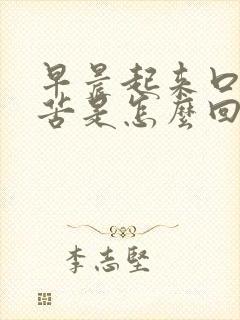 早晨起来口
苦是怎麼回
李志堅